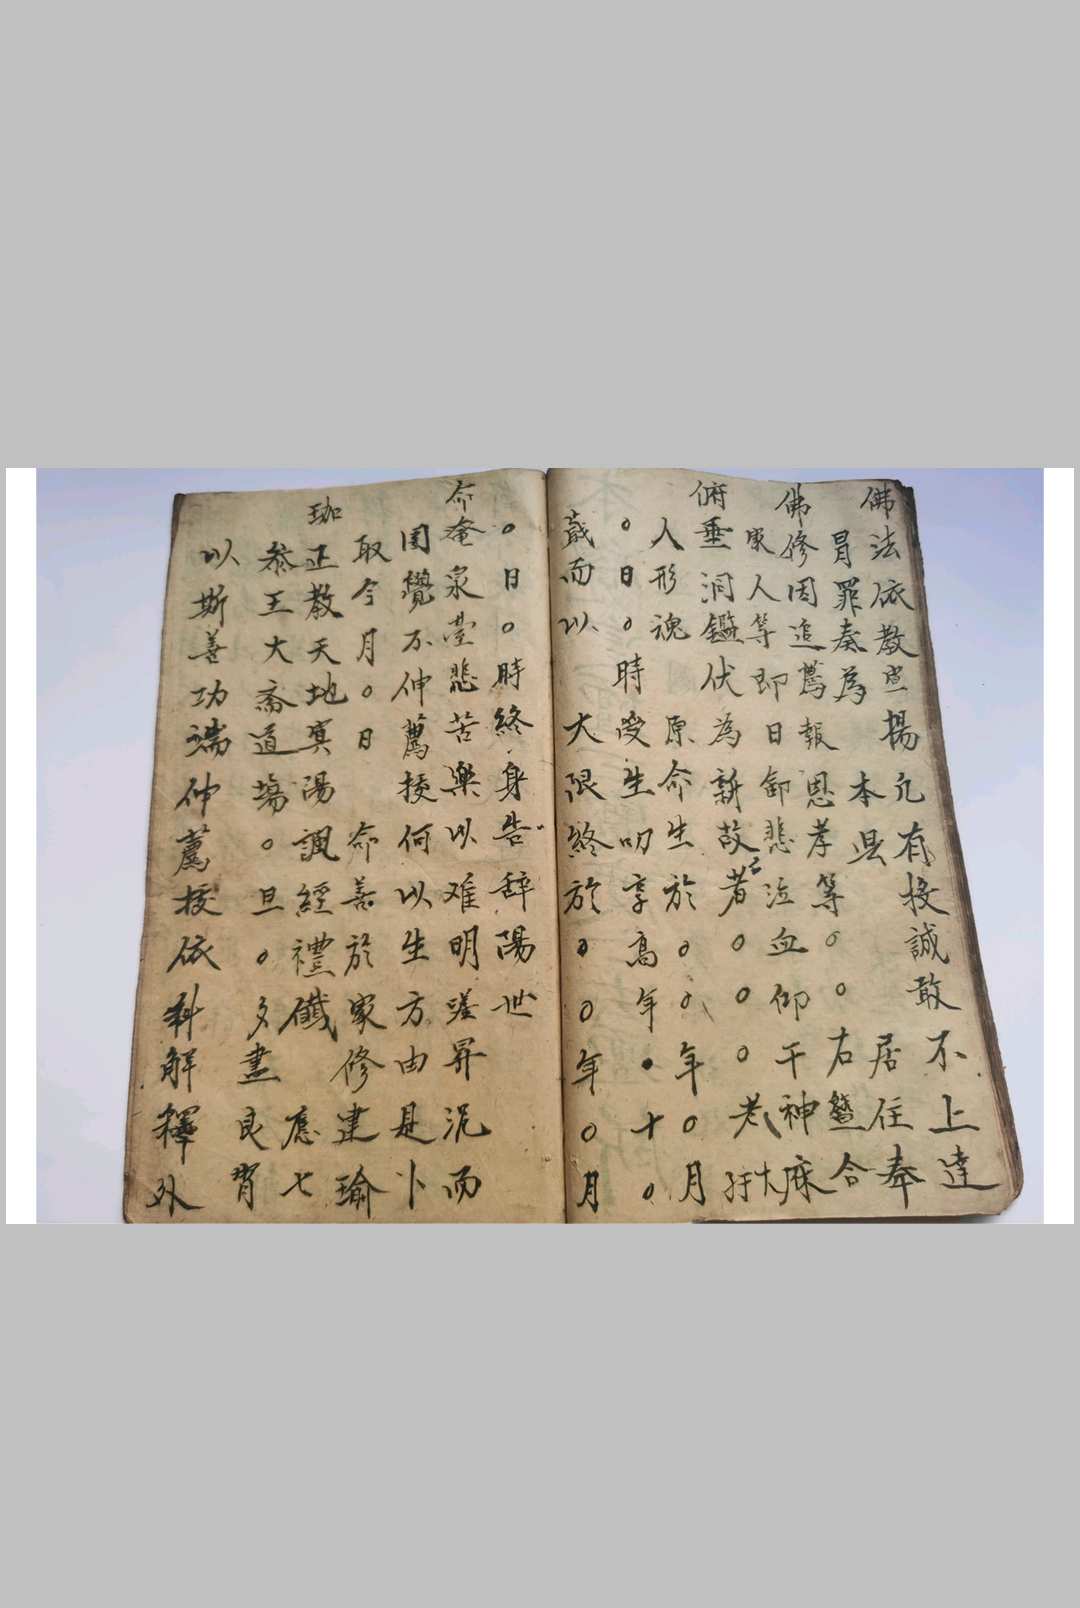 佛法依教宣揚凡有投誠敢不上達
冒罪奏為 本县 居住奉
佛修因追薦報恩孝等○○右暨合
家人等即日啣悲泣血仰干神庥
俯垂洞鑑伏為新故者○○○老大
人形魂 原命生於○○年○月
○日○時受生叨享高年●十○
歲而以 大限終於○○年○月
○日○時終身告辞陽世
命奄泉堂悲苦樂以难明嗟昇沉而
罔覺不伸薦拔何以生方由是卜
取今月○日 命善於家修建瑜
珈正教天地冥陽 諷經禮懺 應七
叅王大斋道塲○旦○夕晝良宵
以斯善功端伸薦拔依科解釋外